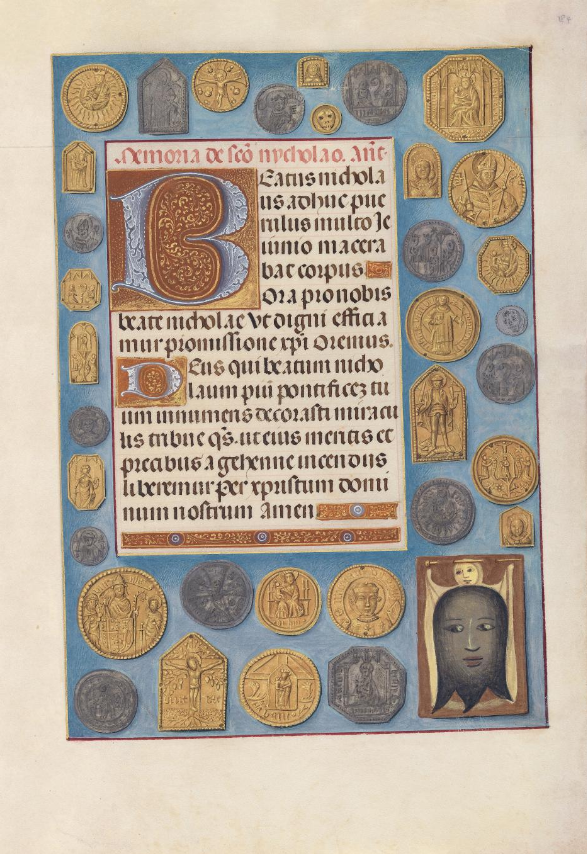 Memoria de sco nycholao. Ant
Beatus nichola
us adhuc pue
rulus multo Ie
iunio macera
bat corpus
Ora pro nobis
beate nicholae Vt digni efficia
mur promissione xpi Oremus.
Deus qui beatum nicho
laum piū pontificez tu
um innumeris decorasti miracu
lis tribue qs. ut eius meritis et
precibus a gehenne incendiis
liberemur Per xpristum domi
num nostrum Amen